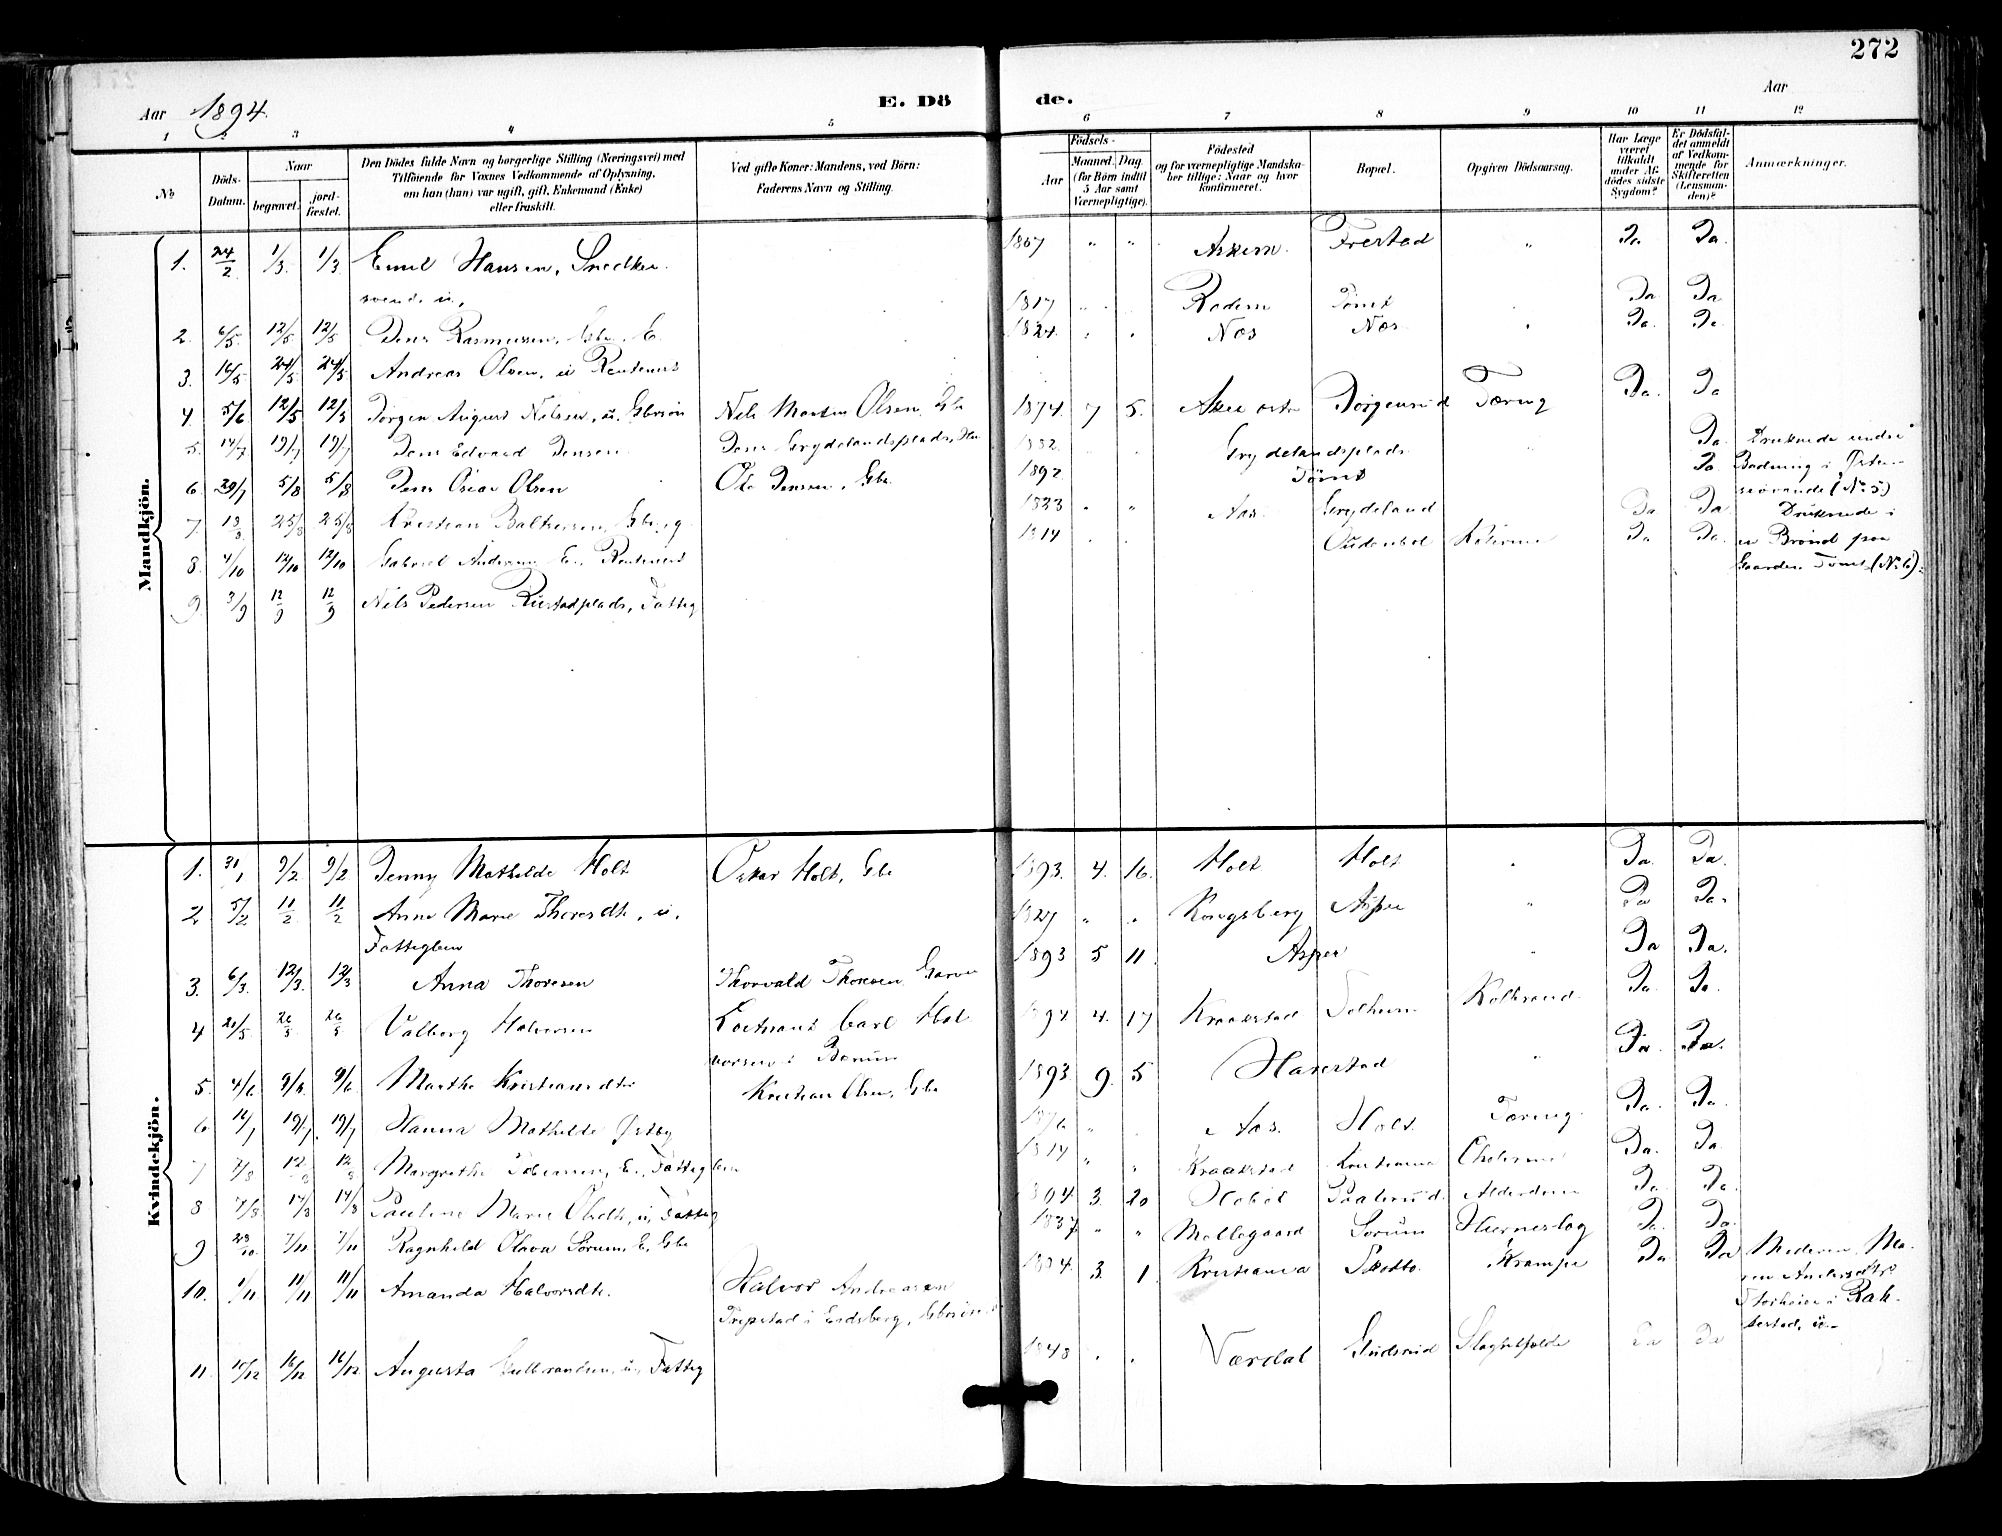 272
Aar 1894.
E. Dö de.
Aar
1 2 3 4 5 6 7 8 9 10 11 12
No
Döds-Datum.
Naar
begravet.
jordfæstet.
Den Dödes fulde Navn og borgerlige Stilling (Næringsvei) med
Tilföiende for Voxnes Vedkommende af Oplysning,
om han (hun) var ugift, gift, Enkemand (Enke)
eller fraskilt.
Ved gifte Koner: Mandens, ved Börn:
Faderens Navn og Stilling.
Födsels-
Aar
Maaned. Dag.
(for Børn indtil
5 Aar samt
Værnepligtige).
Födested
og for værnepligtige Mandskaber tillige: Naar og hvor
konfirmeret.
Bopæl.
Opgiven Dödsaarsag.
Har Læge
været
tilkaldt
under Afdödes sidste
Sygdom?
Er Dödsfaldet anmeldt
af Vedkommende for
Skifteretten
(Lensmanden)?
Anmærkninger.
Mandkjön.
1. 24/2 1/3. 1/3 Emil Hansen, Snedkersvend. u. 1867 " " Askim. Frestad " Ja Ja.
2. 6/5. 12/5 12/5 Jens Rasmussen, Gbr. E. 1817 Tomt Ja Ja
3. 16/5 24/5 24/5 Andreas Olsen, u Rentenist 1824. Næs Næs. Ja. Ja
4. 5/6 12/5 12/5 Jørgen August Nilssen, u. Gbrsøn Nils Martin Olsen, Gbr 1874. 7 5. Tæring Ja. Ja
5. 14/7 19/7 19/7 Jens Edvard Jensen Jens Grydelandsplads, Hm 1882 Grydelandsplads. Ja. Druknede under
6. 29/7 5/8 5/8 Jens Oscar Olsen Ole Jensen, Gbr. 1892 Tomt Ja Badning i
(No 5)
7 25/8 25/8 Kristian Baltersen, Gbr. g 1833 " " Aas. Grydeland Ja Ja Druknede i
8. 4/10 12/10 12/10 Gabriel Andersen E., Rentenist 1814 Ja Ja. en Brønd paa
Gaarden Tomt (No 6).
9 3/9 12/9 12/9 Nils Pedersen Rustadplads, Fattig
Kvindekjön.
1. 31/1 9/2 9/2 Jenny Mathilde Holt Oskar Holt, Gbr 1893. 4. 16. Holt Holt " Ja. Ja.
2 5/2 11/2 11/2 Anne Marie Thoresdtr, u. 1827 " " Kongsberg Asper " Ja Ja.
Fattiglem
3. 6/3. 12/3. 12/3 Anna Thoresen Thorvald Thoresen Garver 1893 5 11. Asper Ja Ja.
4 21/5. 26/5 26/5 Valborg Halvorsen Løitnant Carl Halvorsen i Bærum 1894. 4. 17 Kraakstad Solheim Koldbrand. Ja. Ja.
5. 4/6 9/6 9/6 Marthe Kristiansdtr Kristian Olsen, Gbr 1893. 9. 5 Harestad " Ja. Ja.
6 14/7 19/7. 19/7 Hanna Mathilde Østby 1876 Aas. Holt. Tæring. Ja. Ja.
7 7/8 12/8 12/8 Margrethe Tobiasen, E. Fattiglem 1814 " " Kraakstad Kristiania Cholerine Ja. Ja
8 7/8 14/8 14/8 Pauline Marie Olsdtr, u, Fattig 1894 3. 20 Hobøl Paalerud. Alderdom Ja. Ja.
9 29/10 7/11 7/11 Ragnhild Olava Sørum, E. Gbr 1837. " " Mollegaard Sørum Hjerneslag Ja. Ja.
10. 1/11 11/11 11/11 Amanda Halvorsdtr. Halvor Andreassen 1894. 3. 1. Kristiania Skotbo Krampe Ja Ja Moderen: Maren Andersdtr
i Eidsberg, Gbrsøn i Rakkestad, u.-
11. 10/12 16/12 16/12 Augusta Gulbrandsen, u, Fattig 1848 Værdal Gudsrud Slagtilfælde Ja Ja